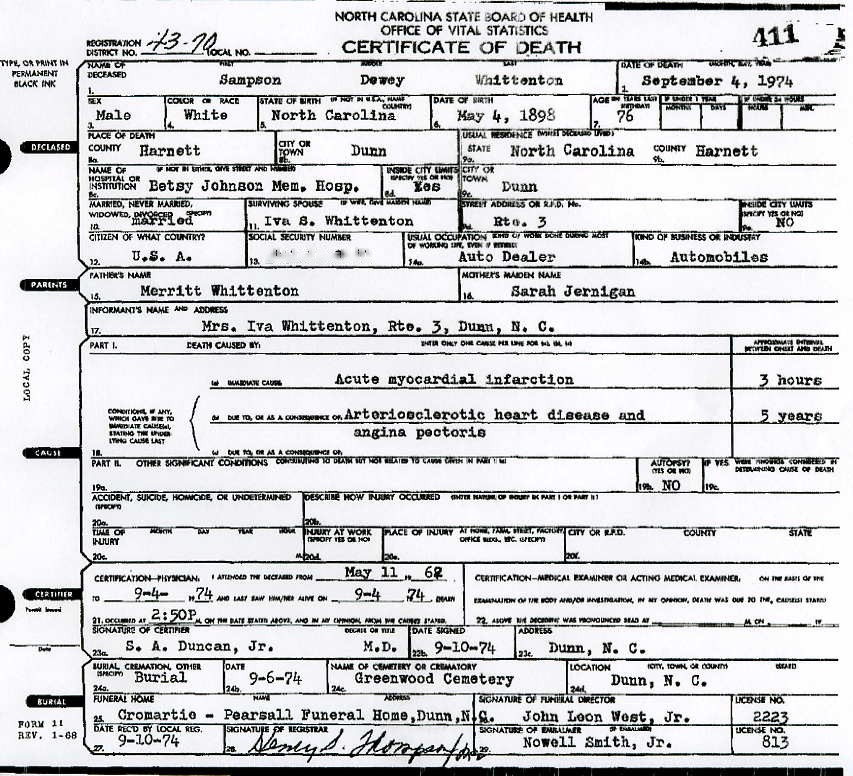 NORTH CAROLINA STATE BOARD OF HEALTH
OFFICE OF VITAL STATISTICS
CERTIFICATE OF DEATH
411
TYPE, OR PRINT IN
PERMANENT
BLACK INK
REGISTRATION
DISTRICT NO. 43-70 LOCAL NO.
NAME OF DECEASED FIRST MIDDLE LAST
1. Sampson Dewey Whittenton
DATE OF DEATH (MONTH, DAY, YEAR)
2. September 4, 1974
SEX
3. Male
COLOR OR RACE
4. White
STATE OF BIRTH (IF NOT IN U.S.A., NAME COUNTRY)
5. North Carolina
DATE OF BIRTH
6. May 4, 1898
AGE (IN YEARS LAST BIRTHDAY)
7. 76
IF UNDER 1 YEAR
MONTHS DAYS
IF UNDER 24 HOURS
HOURS MIN.
DECEASED
PLACE OF DEATH
COUNTY Harnett
8a.
CITY OR TOWN Dunn
8b.
USUAL RESIDENCE (WHERE DECEASED LIVED)
STATE North Carolina
9a.
COUNTY Harnett
9b.
NAME OF HOSPITAL OR INSTITUTION (IF NOT IN EITHER, GIVE STREET AND NUMBER)
8c. Betsy Johnson Mem. Hosp.
INSIDE CITY LIMITS
(SPECIFY YES OR NO)
8d. Yes
CITY OR TOWN
9c. Dunn
MARRIED, NEVER MARRIED,
WIDOWED, DIVORCED (SPECIFY)
10. married
SURVIVING SPOUSE (IF WIFE, GIVE MAIDEN NAME)
11. Iva S. Whittenton
STREET ADDRESS OR R.F.D. No.
9d. Rte. 3
INSIDE CITY LIMITS
(SPECIFY YES OR NO)
9e. NO
CITIZEN OF WHAT COUNTRY?
12. U.S. A.
SOCIAL SECURITY NUMBER
13.
USUAL OCCUPATION (KIND OF WORK DONE DURING MOST OF WORKING LIFE, EVEN IF RETIRED)
14a. Auto Dealer
KIND OF BUSINESS OR INDUSTRY
14b. Automobiles
PARENTS
FATHER'S NAME
15. Merritt Whittenton
MOTHER'S MAIDEN NAME
16. Sarah Jernigan
INFORMANT'S NAME AND ADDRESS
17. Mrs. Iva Whittenton, Rte. 3, Dunn, N. C.
LOCAL COPY
PART I. DEATH CAUSED BY: ENTER ONLY ONE CAUSE PER LINE FOR (a), (b), (c)
APPROXIMATE INTERVAL
BETWEEN ONSET AND DEATH
(a) IMMEDIATE CAUSE Acute myocardial infarction 3 hours
CONDITIONS, IF ANY,
WHICH GAVE RISE TO
IMMEDIATE CAUSE(a),
STATING THE UNDER-
LYING CAUSE LAST
(b) DUE TO, OR AS A CONSEQUENCE OF, Arteriosclerotic heart disease and 5 years
angina pectoris
CAUSE
18. (c) DUE TO, OR AS A CONSEQUENCE OF,
PART II. OTHER SIGNIFICANT CONDITIONS CONTRIBUTING TO DEATH BUT NOT RELATED TO CAUSE GIVEN IN PART I (a)
19a.
AUTOPSY?
(YES OR NO)
19b. NO
IF YES, WERE FINDINGS CONSIDERED IN
DETERMINING CAUSE OF DEATH
19c.
ACCIDENT, SUICIDE, HOMICIDE, OR UNDETERMINED
(SPECIFY)
20a.
DESCRIBE HOW INJURY OCCURRED (ENTER NATURE OF INJURY IN PART I OR PART II)
20b.
TIME OF INJURY MONTH DAY YEAR HOUR
20c. M.
INJURY AT WORK
(SPECIFY YES OR NO)
20d.
PLACE OF INJURY AT HOME, FARM, STREET, FACTORY,
OFFICE BLDG., ETC. (SPECIFY)
20e.
CITY OR R.F.D. COUNTY STATE
20f.
CERTIFIER
CERTIFICATION-PHYSICIAN; I ATTENDED THE DECEASED FROM May 11 19 62
TO 9-4- 1974 AND LAST SAW HIM/HER ALIVE ON 9-4 74 DEATH
21. OCCURRED AT 2:50P M. ON THE DATE STATED ABOVE, AND IN MY OPINION, FROM THE CAUSES STATED.
CERTIFICATION-MEDICAL EXAMINER OR ACTING MEDICAL EXAMINER, ON THE BASIS OF THE
EXAMINATION OF THE BODY AND/OR INVESTIGATION, IN MY OPINION, DEATH WAS DUE TO THE, CAUSE(S) STATED
22. ABOVE THE DECEDENT WAS PRONOUNCED DEAD AT M. ON 19
Date
SIGNATURE OF CERTIFIER DEGREE OR TITLE
23a. S. A. Duncan, Jr. M.D.
DATE SIGNED
22b. 9-10-74
ADDRESS
23c. Dunn, N. C.
BURIAL
BURIAL, CREMATION, OTHER
(SPECIFY)
24a. Burial
DATE
24b. 9-6-74
NAME OF CEMETERY OR CREMATORY
24c. Greenwood Cemetery
LOCATION (CITY, TOWN, OR COUNTY) (STATE)
24d. Dunn, N. C.
FUNERAL HOME NAME ADDRESS
25. Cromartie - Pearsall Funeral Home,Dunn,N.C.
SIGNATURE OF FUNERAL DIRECTOR
John Leon West, Jr.
LICENSE NO.
2223
FORM 11
REV. 1-68
DATE REC'D BY LOCAL REG.
27. 9-10-74
SIGNATURE OF REGISTRAR
28. Henry S. Thompson
SIGNATURE OF EMBALMER (IF EMBALMED)
29. Nowell Smith, Jr.
LICENSE NO.
813